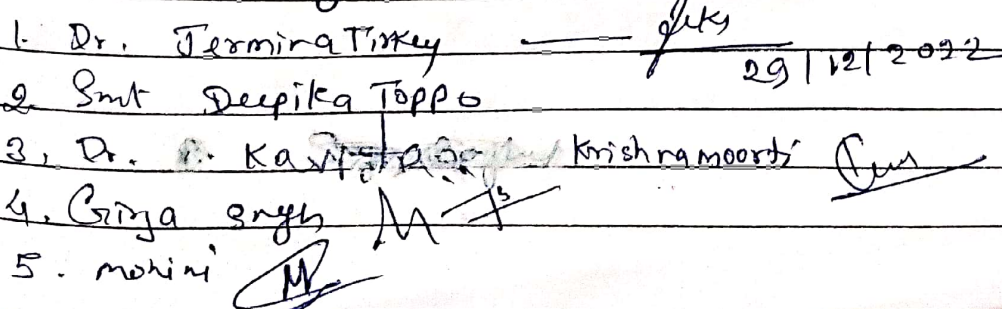 1. Dr. Jermina Tirkey
29/12/2022
2. Smt Deepika Toppo
3, Dr. Krishnamoorti
4. Girja singh
5. mohini